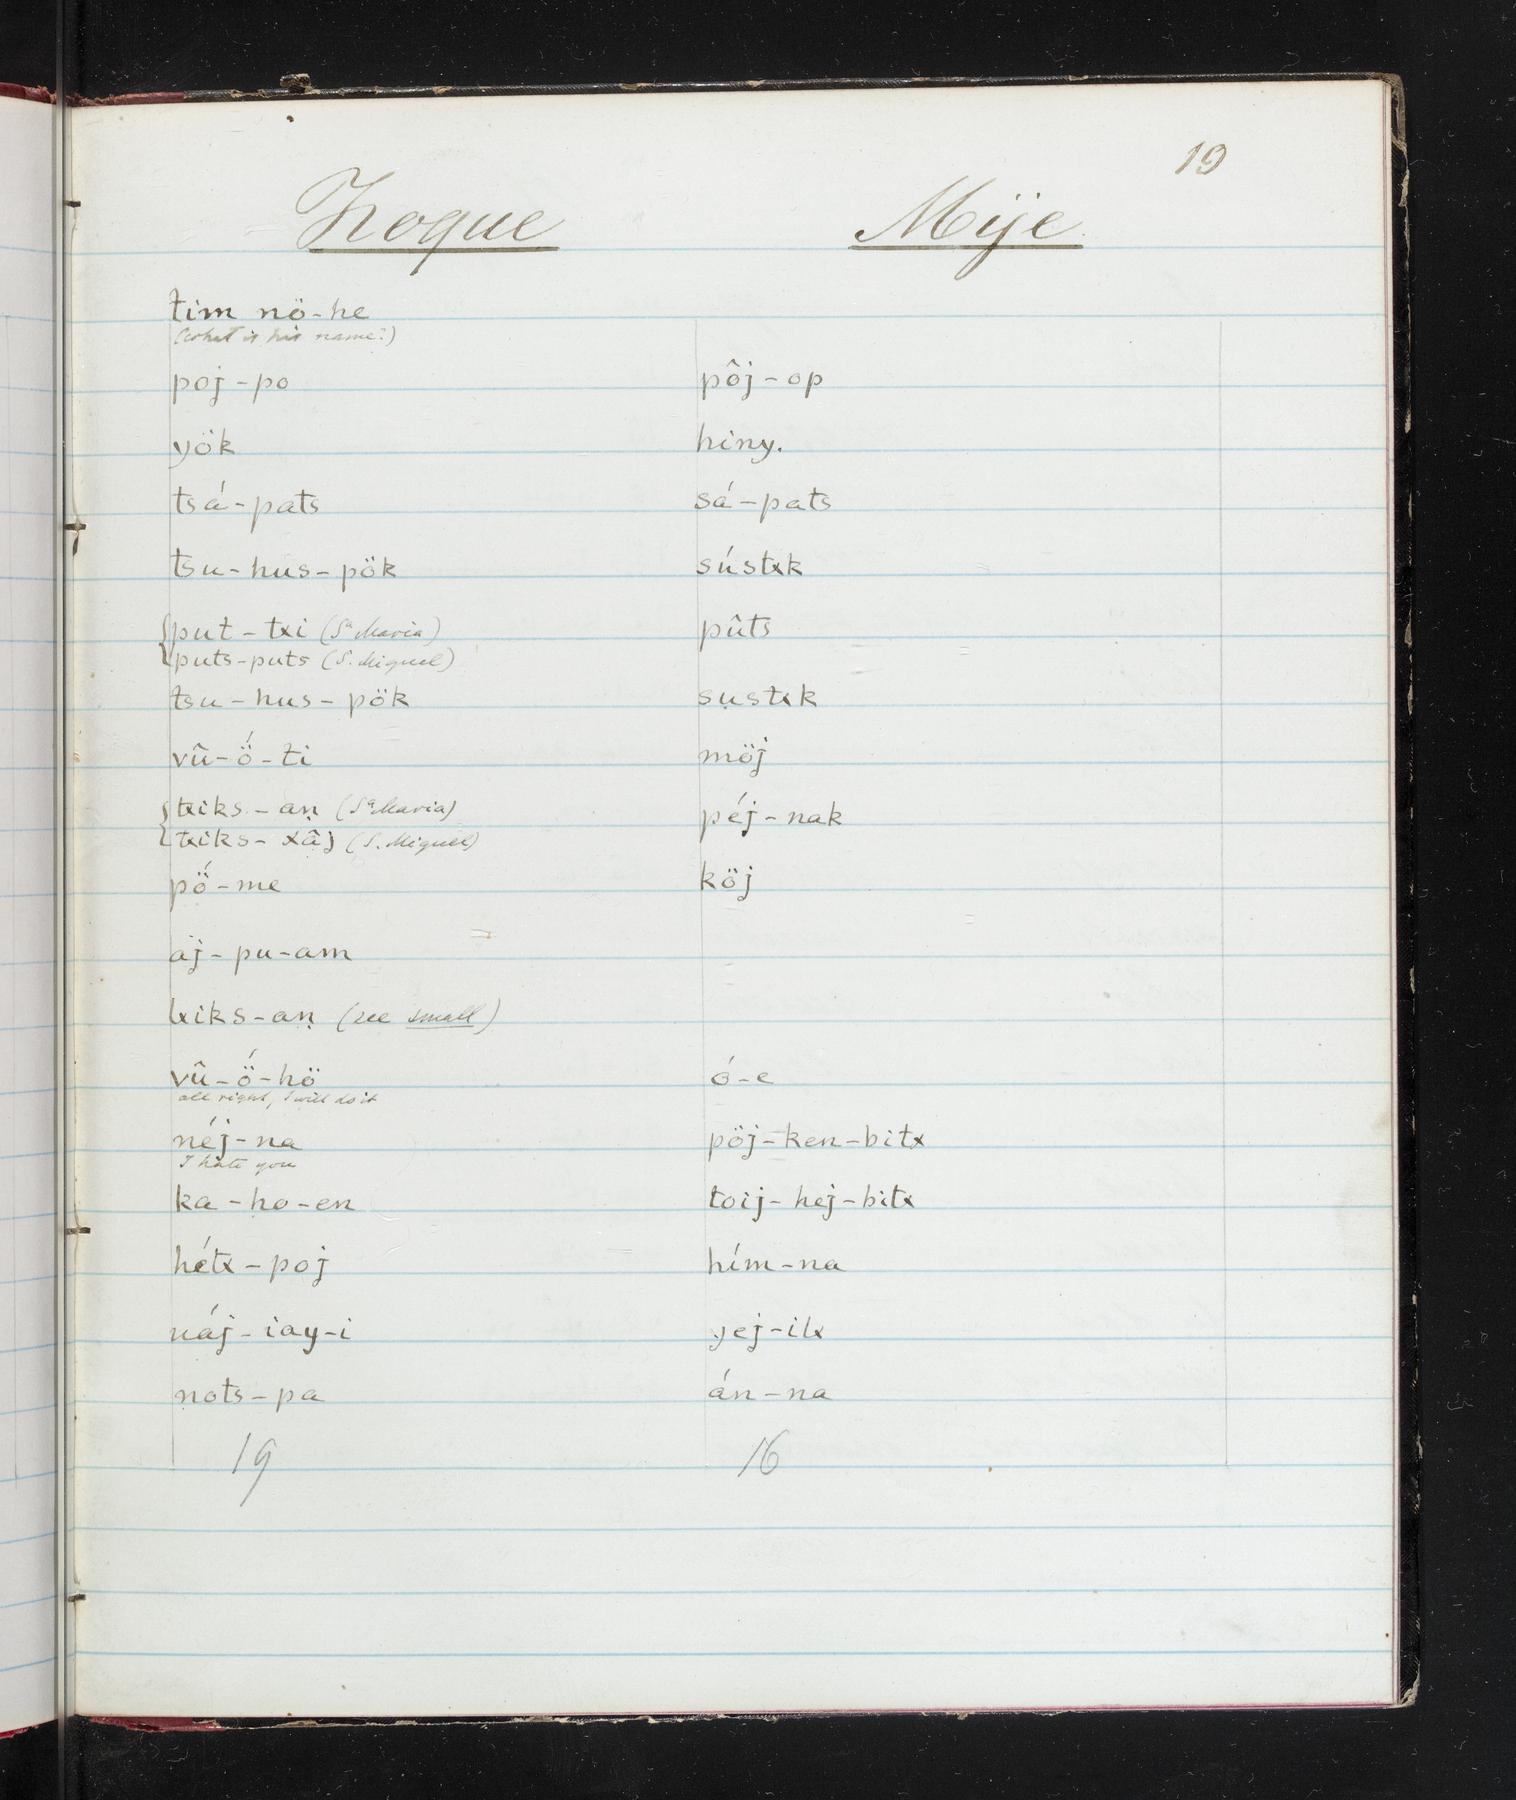 19
Zoque Mije
tim nö-he
(what is his name?)
poj-po pôj-op
yök hiny.
tsá-pats sá-pats
tsu-hus-pök sústxk
put-txi (Sª Maria) pûts
puts-puts (S. Miguel)
tsu-hus-pök sustxk
vû-ö́-ti möj
txiks-aṇ (Sª Maria) péj-nak
txiks-xâj (S. Miguel)
pö́-me köj
aj-pu-am
txiks-aṇ (see small)
vû-ö́-hö ó-e
all right, I will do it
néj-na pöj-ken-bitx
I hate you
ka-ho-en toij-hej-bitx
hétx-poj hím-na
náj-iay-i yej-itx
nots-pa án-na
19 16